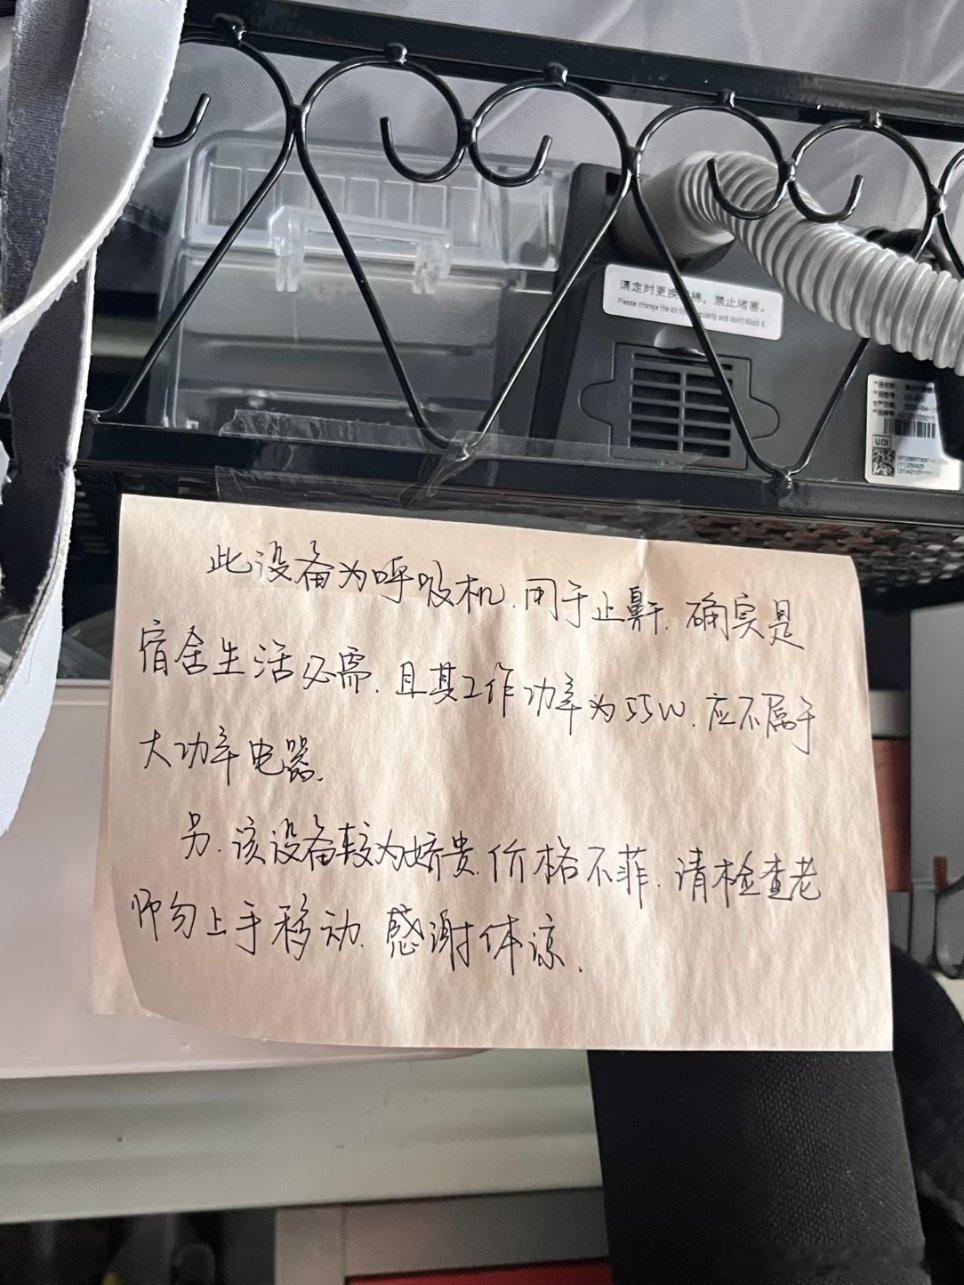 请定时更换 棉，禁止堵塞。
Please change the air and don't block it.
UDI
此设备为呼吸机，用于止鼾，确实是
宿舍生活必需，且其工作功率为55W，应不属于
大功率电器。
另，该设备较为娇贵，价格不菲，请检查老
师勿上手移动，感谢体谅。